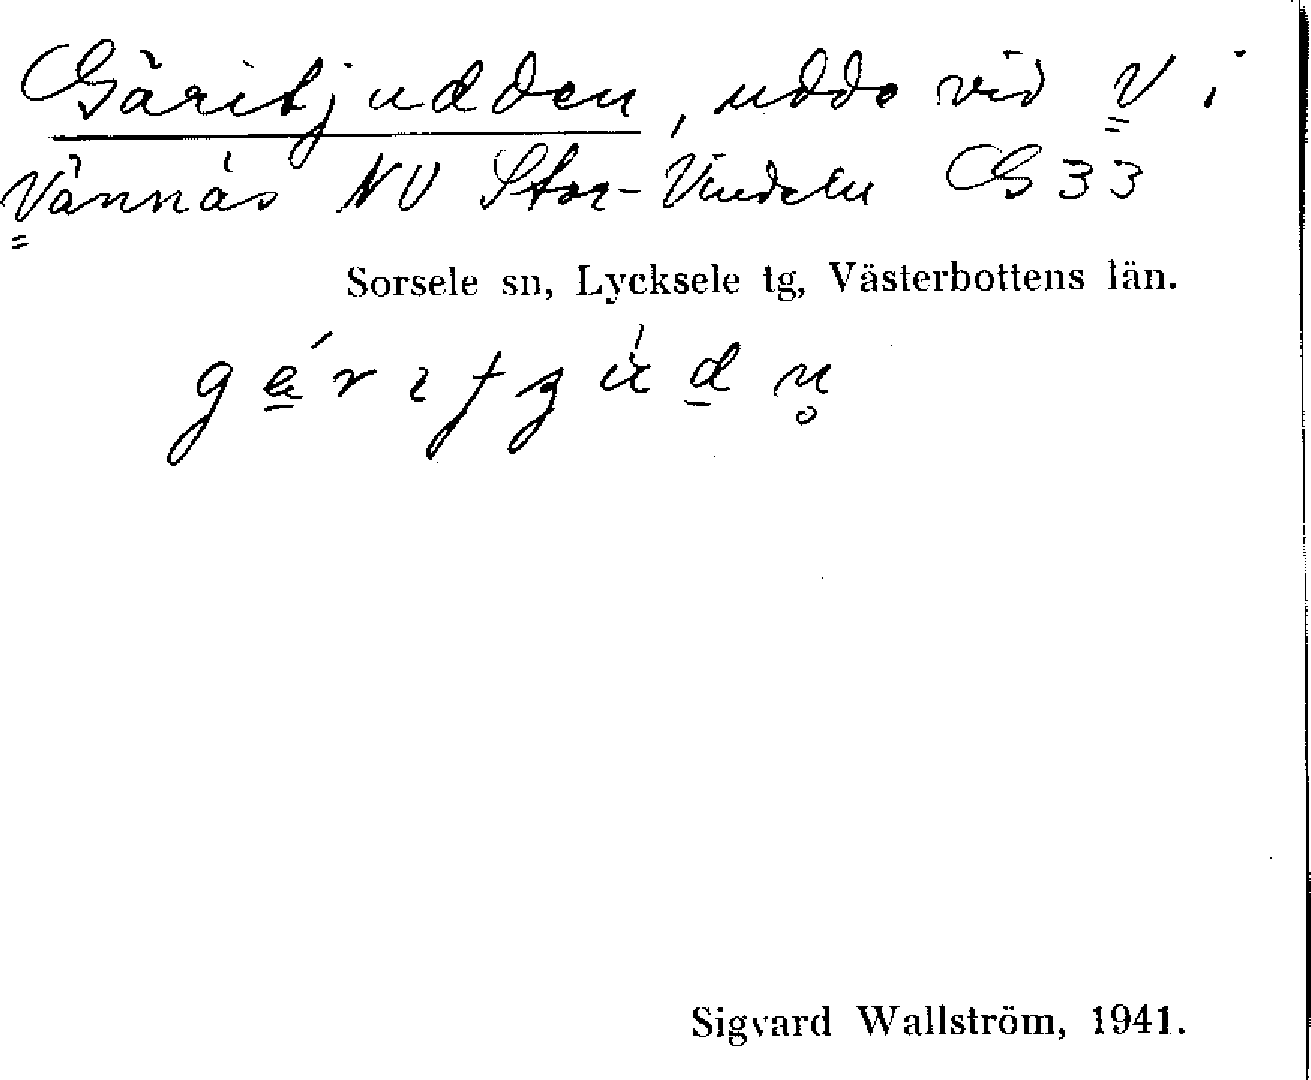 Gäritjudden, udde vid V i
Vännäs NV Stor-Vindeln G 33
Sorsele sn, Lycksele tg, Västerbottens län.
Sigvard Wallström, 1941.